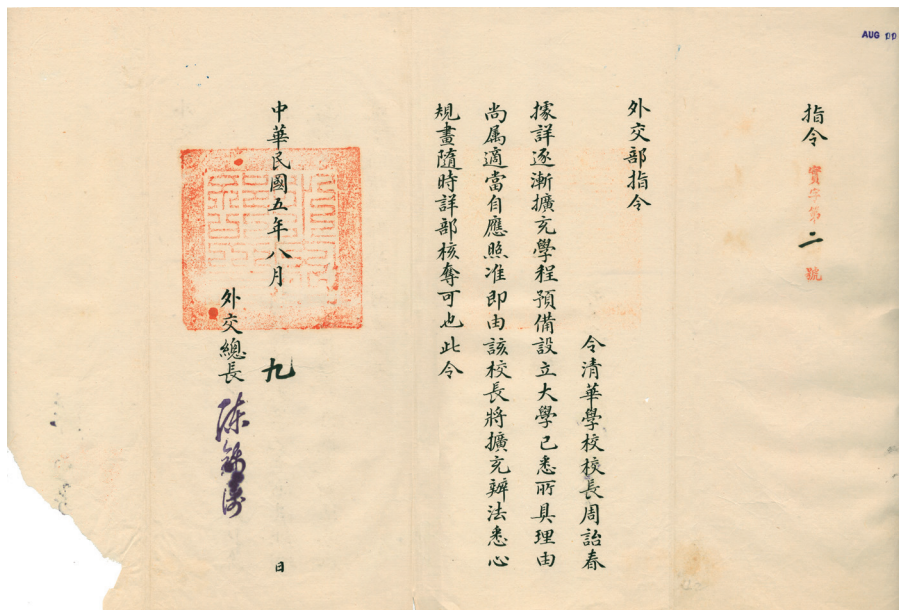 AUG
指令 實字第二號
外交部指令
令清華學校校長周詒春
據詳逐漸擴充學程預備設立大學已悉所具理由
尚属適當自應照准即由該校長將擴充辦法悉心
規畫隨時詳部核奪可也此令
中華民國五年八月九日
外交總長 陳錦濤